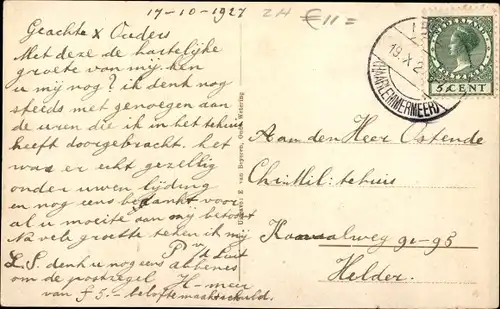 17-10-1927
ZH €11=
Geachte x Ouders
Met deze de hartelijke
groete van mij. ken
u mij nog? ik denk nog
steeds met genoegen aan
de uren die ik in het tehuis
heeft doorgebracht. het
was er echt gezellig
onder uwen lijding
en nog eens bedankt voor
al u moeite aan mij betoont
Na vele groette teken ik mij
P v/d Luit
L.S. denk u nog eens abbenes
om de postzegel H-meer
van f 5.- belofte maakt schuld.
Uitgave: E van Bepuren, Oude Wetering
19.X.2
(HAARLEMMERMEER)
5 CENT
Aan den Heer Ostende
Chr. Mil. tehuis
Kanaalweg 91-93
Helder.